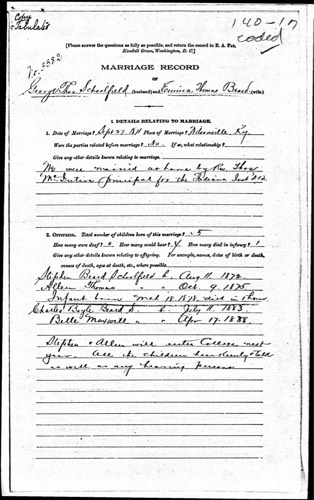 Copy
Tabulated
140-17
coded
No. 3382
[Please answer the questions as fully as possible, and return the record to E. A. Fay,
Kendall Green, Washington, D. C.]
MARRIAGE RECORD
OF
George Thos Schoolfield (husband) and Louisa Thomas Beard (wife)
I. DETAILS RELATING TO MARRIAGE.
1. Date of Marriage? Sept 27 Place of Marriage? Ky
Were the parties related before marriage? No. If so, what relationship?
Give any other details known relating to marriage.
We were married at home by Rev. Thos
Mc Intire principal for the Indiana Inst
2. OFFSPRING. Total number of children born of this marriage? 5
How many were deaf? 0 How many could hear? 4 How many died in infancy? 1
Give any other details known relating to offspring. For example, names, dates of birth or death,
causes of death, ages at death, etc., where possible.
Stephen Beard Schoolfield b. Aug 11. 1872.
Allen Thomas " " Oct. 9. 1875
Infant born Mch 18. 1878. died in
Charles Boyle Beard b. July 11. 1883.
Belle Maxwell " " Apr 17. 1888.
Stephen & Allen will enter College next
year. All the children hear & talk
as well as any hearing persons